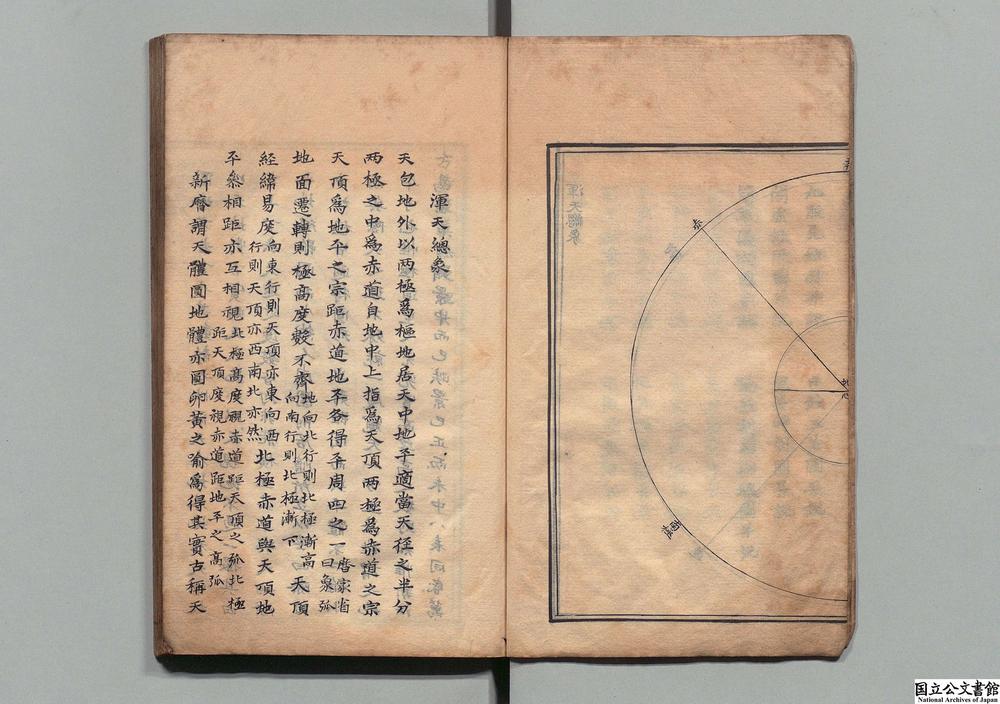 赤
南極
地心
渾天總象
天包地外以兩極爲樞地居天中地平適當天徑之半分
兩極之中爲赤道自地中上指爲天頂兩極爲赤道之宗
天頂爲地平之宗距赤道地平各得平周四之一曆家省曰象弧
地面遷轉則極高度數不齊地向北行則北極漸高向南行則北極漸下天頂
經緯易度向東行則天頂亦東向西行則天頂亦西南北亦然北極赤道與天頂地
平參相距亦互相視北極高度視赤道距天頂之弧北極距天頂度視赤道距地平之高弧
新曆謂天體圓地體亦圓卵黃之喻爲得其實古稱天
国立公文書館
National Archives of Japan